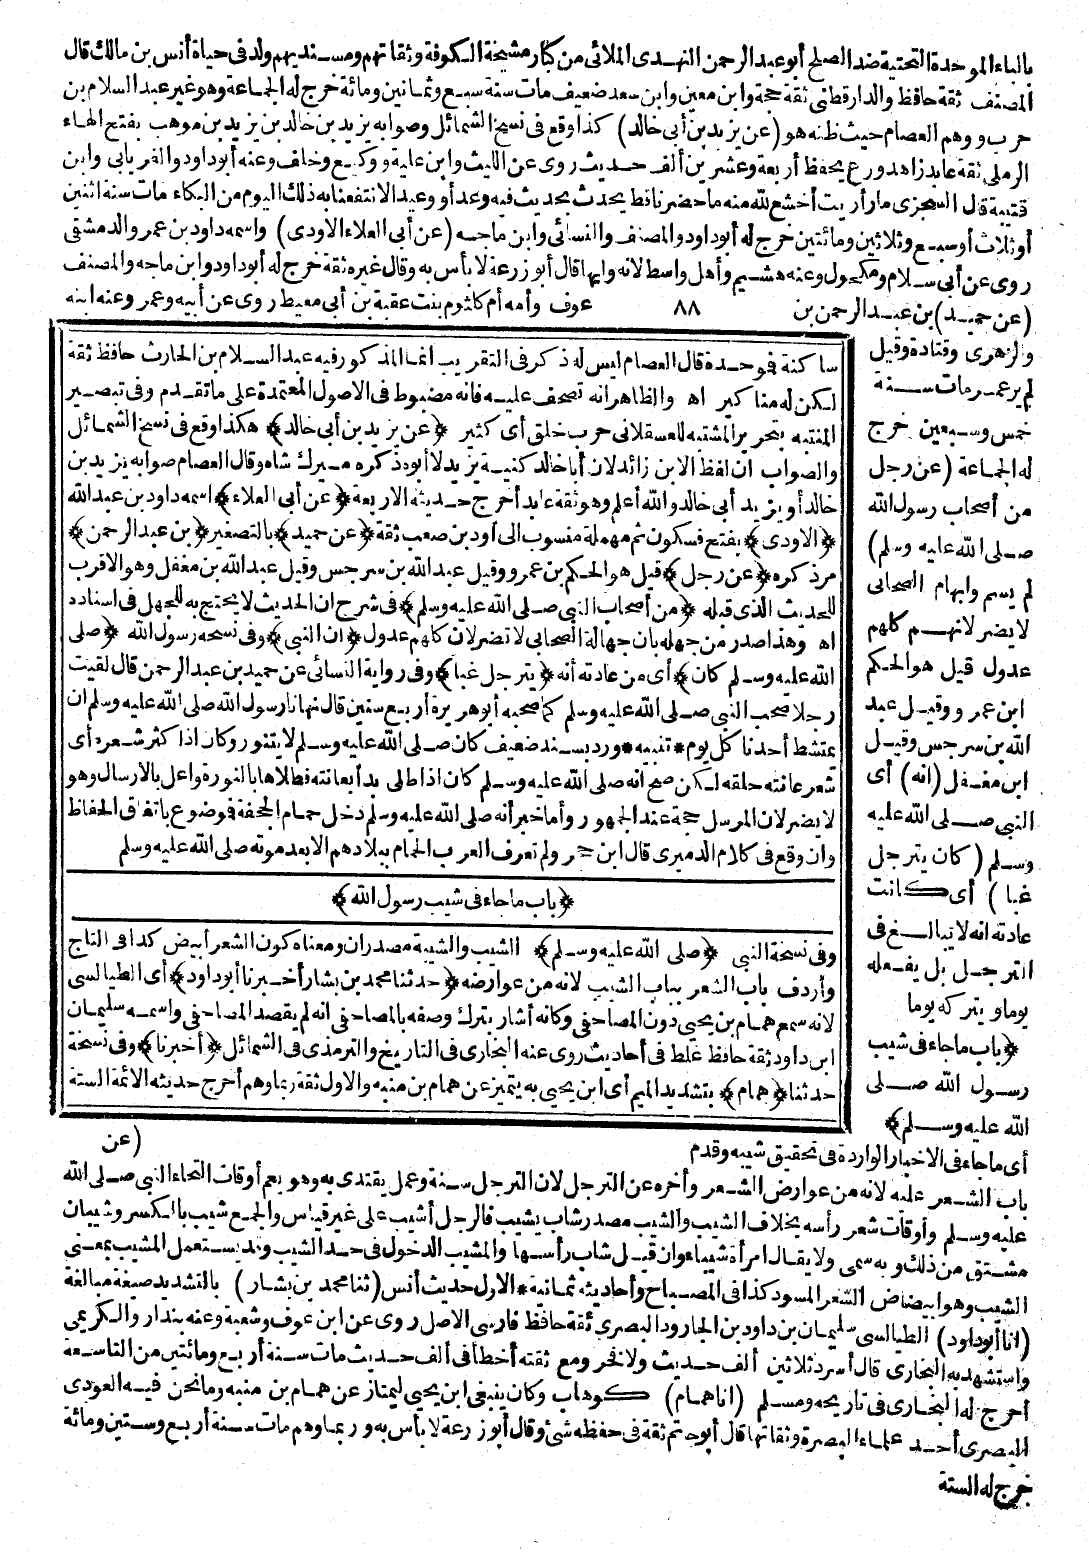 بالباء الموحدة التحتية ضد الصلح أبو عبد الرحمن النهدى الملائى من كبار مشيخة الكوفة وثقاتهم ومسنديهم ولد فى حياة أنس بن مالك قال
المصنف ثقة حافظ والدارقطنى ثقة حجة وابن معين وابن سعد ضعيف مات سنة سبع وثمانين ومائة خرج له الجماعة وهو غير عبد السلام بن
حرب ووهم العصام حيث ظنه هو (عن يزيد بن أبى خالد) كذا وقع فى نسخ الشمائل وصوابه يزيد بن خالد بن يزيد بن موهب بفتح الهاء
الرملى ثقة عابد زاهد ورع يحفظ أربعة وعشرين ألف حديث روى عن الليث وابن علية ووكيع وخلف وعنه أبو داود والفريابى وابن
قتيبة قال السجزى ما رأيت أخشع لله منه ما حضرنا قط يحدث بحديث فيه وعد أو وعيد الا انتفعنا به ذلك اليوم من البكاء مات سنة اثنين
أو ثلاث أو سبع وثلاثين ومائتين خرج له أبو داود والمصنف والنسائى وابن ماجه (عن أبى العلاء الاودى) واسمه داود بن عمر والدمشقى
روى عن أبى سلام ومكحول وعنه هشيم وأهل واسط لانه وليها قال أبو زرعة لا بأس به وقال غيره ثقة خرج له أبو داود وابن ماجه والمصنف
(عن حميد) بن عبد الرحمن بن ٨٨ عوف وأمه أم كلثوم بنت عقبة بن أبى معيط روى عن أبيه وعمر وعنه ابنه
والزهرى وقتادة وقيل
لم ير عمر مات سنة
خمس وسبعين خرج
له الجماعة (عن رجل
من أصحاب رسول الله
صلى الله عليه وسلم)
لم يسم وابهام الصحابى
لا يضر لانهم كلهم
عدول قيل هو الحكم
ابن عمرو وقيل عبد
الله بن سرجس وقيل
ابن مغفل (انه) أى
النبى صلى الله عليه
وسلم (كان يترجل
غبا) أى كانت
عادته انه لا يبالغ فى
الترجل بل يفعله
يوما ويتركه يوما
﴿باب ما جاء فى شيب
رسول الله صلى
الله عليه وسلم﴾
ساكنة فموحدة قال العصام ليس له ذكر فى التقريب انما المذكور فيه عبد السلام بن الحارث حافظ ثقة
لكن له مناكير اه والظاهر انه تصحف عليه فانه مضبوط فى الاصول المعتمدة على ما تقدم وفى تبصير
المنتبه بتحرير المشتبه للعسقلانى حرب خلق أى كثير ﴿عن يزيد بن أبى خالد﴾ هكذا وقع فى نسخ الشمائل
والصواب ان لفظ الابن زائد لان أبا خالد كنية يزيد لا أبوه ذكره ميرك شاه وقال العصام صوابه يزيد بن
خالد أو يزيد أبى خالد والله أعلم وهو ثقة عابد أخرج حديثه الاربعة ﴿عن أبى العلاء﴾ اسمه داود بن عبد الله
﴿الاودى﴾ بفتح فسكون ثم مهملة منسوب الى أود بن صعب ثقة ﴿عن حميد﴾ بالتصغير ﴿بن عبد الرحمن﴾
مر ذكره ﴿عن رجل﴾ قيل هو الحكم بن عمرو وقيل عبد الله بن سرجس وقيل عبد الله بن مغفل وهو الاقرب
للحديث الذى قبله ﴿من أصحاب النبى صلى الله عليه وسلم﴾ فى شرح ان الحديث لا يحتج به للجهل فى اسناده
اه وهذا صدر من جهله بان جهالة الصحابى لا تضر لان كلهم عدول ﴿ان النبى﴾ وفى نسخه رسول الله ﴿صلى
الله عليه وسلم كان﴾ أى من عادته أنه ﴿يترجل غبا﴾ وفى رواية النسائى عن حميد بن عبد الرحمن قال لقيت
رجلا صحب النبى صلى الله عليه وسلم كما صحبه أبو هريرة أربع سنين قال نهانا رسول الله صلى الله عليه وسلم ان
يمتشط أحدنا كل يوم * تنبيه * ورد بسند ضعيف كان صلى الله عليه وسلم لا يتنور وكان اذا كثر شعره أى
شعر عانته حلقه لكن صح انه صلى الله عليه وسلم كان اذا طلى بدأ بعانته فطلاها بالنورة واعل بالارسال وهو
لا يضر لان المرسل حجة عند الجمهور وأما خبر أنه صلى الله عليه وسلم دخل حمام الجحفة فوضوع باتفاق الحفاظ
وان وقع فى كلام الدميرى قال ابن حجر ولم تعرف العرب الحمام ببلادهم الا بعد موته صلى الله عليه وسلم
﴿باب ما جاء فى شيب رسول الله﴾
وفى نسخة النبى ﴿صلى الله عليه وسلم﴾ الشيب والشيبة مصدران ومعناه كون الشعر أبيض كذا فى التاج
وأردف باب الشعر بباب الشيب لانه من عوارضه ﴿حدثنا محمد بن بشار أخبرنا أبو داود﴾ أى الطيالسى
لانه سمع همام بن يحيى دون المصاحفى وكانه أشار بترك وصفه بالمصاحفى انه لم يقصد المصاحفى واسمه سليمان
ابن داود ثقة حافظ غلط فى أحاديث روى عنه البخارى فى التاريخ والترمذى فى الشمائل ﴿أخبرنا﴾ وفى نسخة
حدثنا ﴿همام﴾ بتشديد الميم أى ابن يحيى به يتميز عن همام بن منبه والاول ثقة ربما وهم أخرج حديثه الائمة الستة
(عن
أى ما جاء فى الاخبار الواردة فى تحقيق شيبه وقدم
باب الشعر عليه لانه من عوارض الشعر وأخره عن الترجل لان الترجل سنة وعمل يقتدى به وهو يعم أوقات التحاء النبى صلى الله
عليه وسلم وأوقات شعر رأسه بخلاف الشيب والشيب مصدر شاب يشيب فالرجل أشيب على غير قياس والجمع شيب بالكسر وشيبان
مشتق من ذلك وبه سمى ولا يقال امرأة شيباء وان قيل شاب رأسها والمشيب الدخول فى حد الشيب وقد يستعمل المشيب بمعنى
الشيب وهو ابيضاض الشعر المسود كذا فى المصباح وأحاديثه ثمانية * الاول حديث أنس (ثنا محمد بن بشار) بالتشديد صيغة مبالغة
(انا أبو داود) الطيالسى سليمان بن داود بن الجارود البصرى ثقة حافظ فارسى الاصل روى عن ابن عوف وشعبة وعنه بندار والكريمى
واستشهد به البخارى قال أسرد ثلاثين ألف حديث ولا فخر ومع ثقته أخطأ فى ألف حديث مات سنة أربع ومائتين من التاسعة
أخرج له البخارى فى تاريخه ومسلم (انا همام) كوهاب وكان ينبغى ابن يحيى ليمتاز عن همام بن منبه وما نحن فيه العوذى
البصرى أحد علماء البصرة وثقاتها قال أبو حاتم ثقة فى حفظه شئ وقال أبو زرعة لا بأس به وربما وهم مات سنة أربع وستين ومائة
خرج له الستة